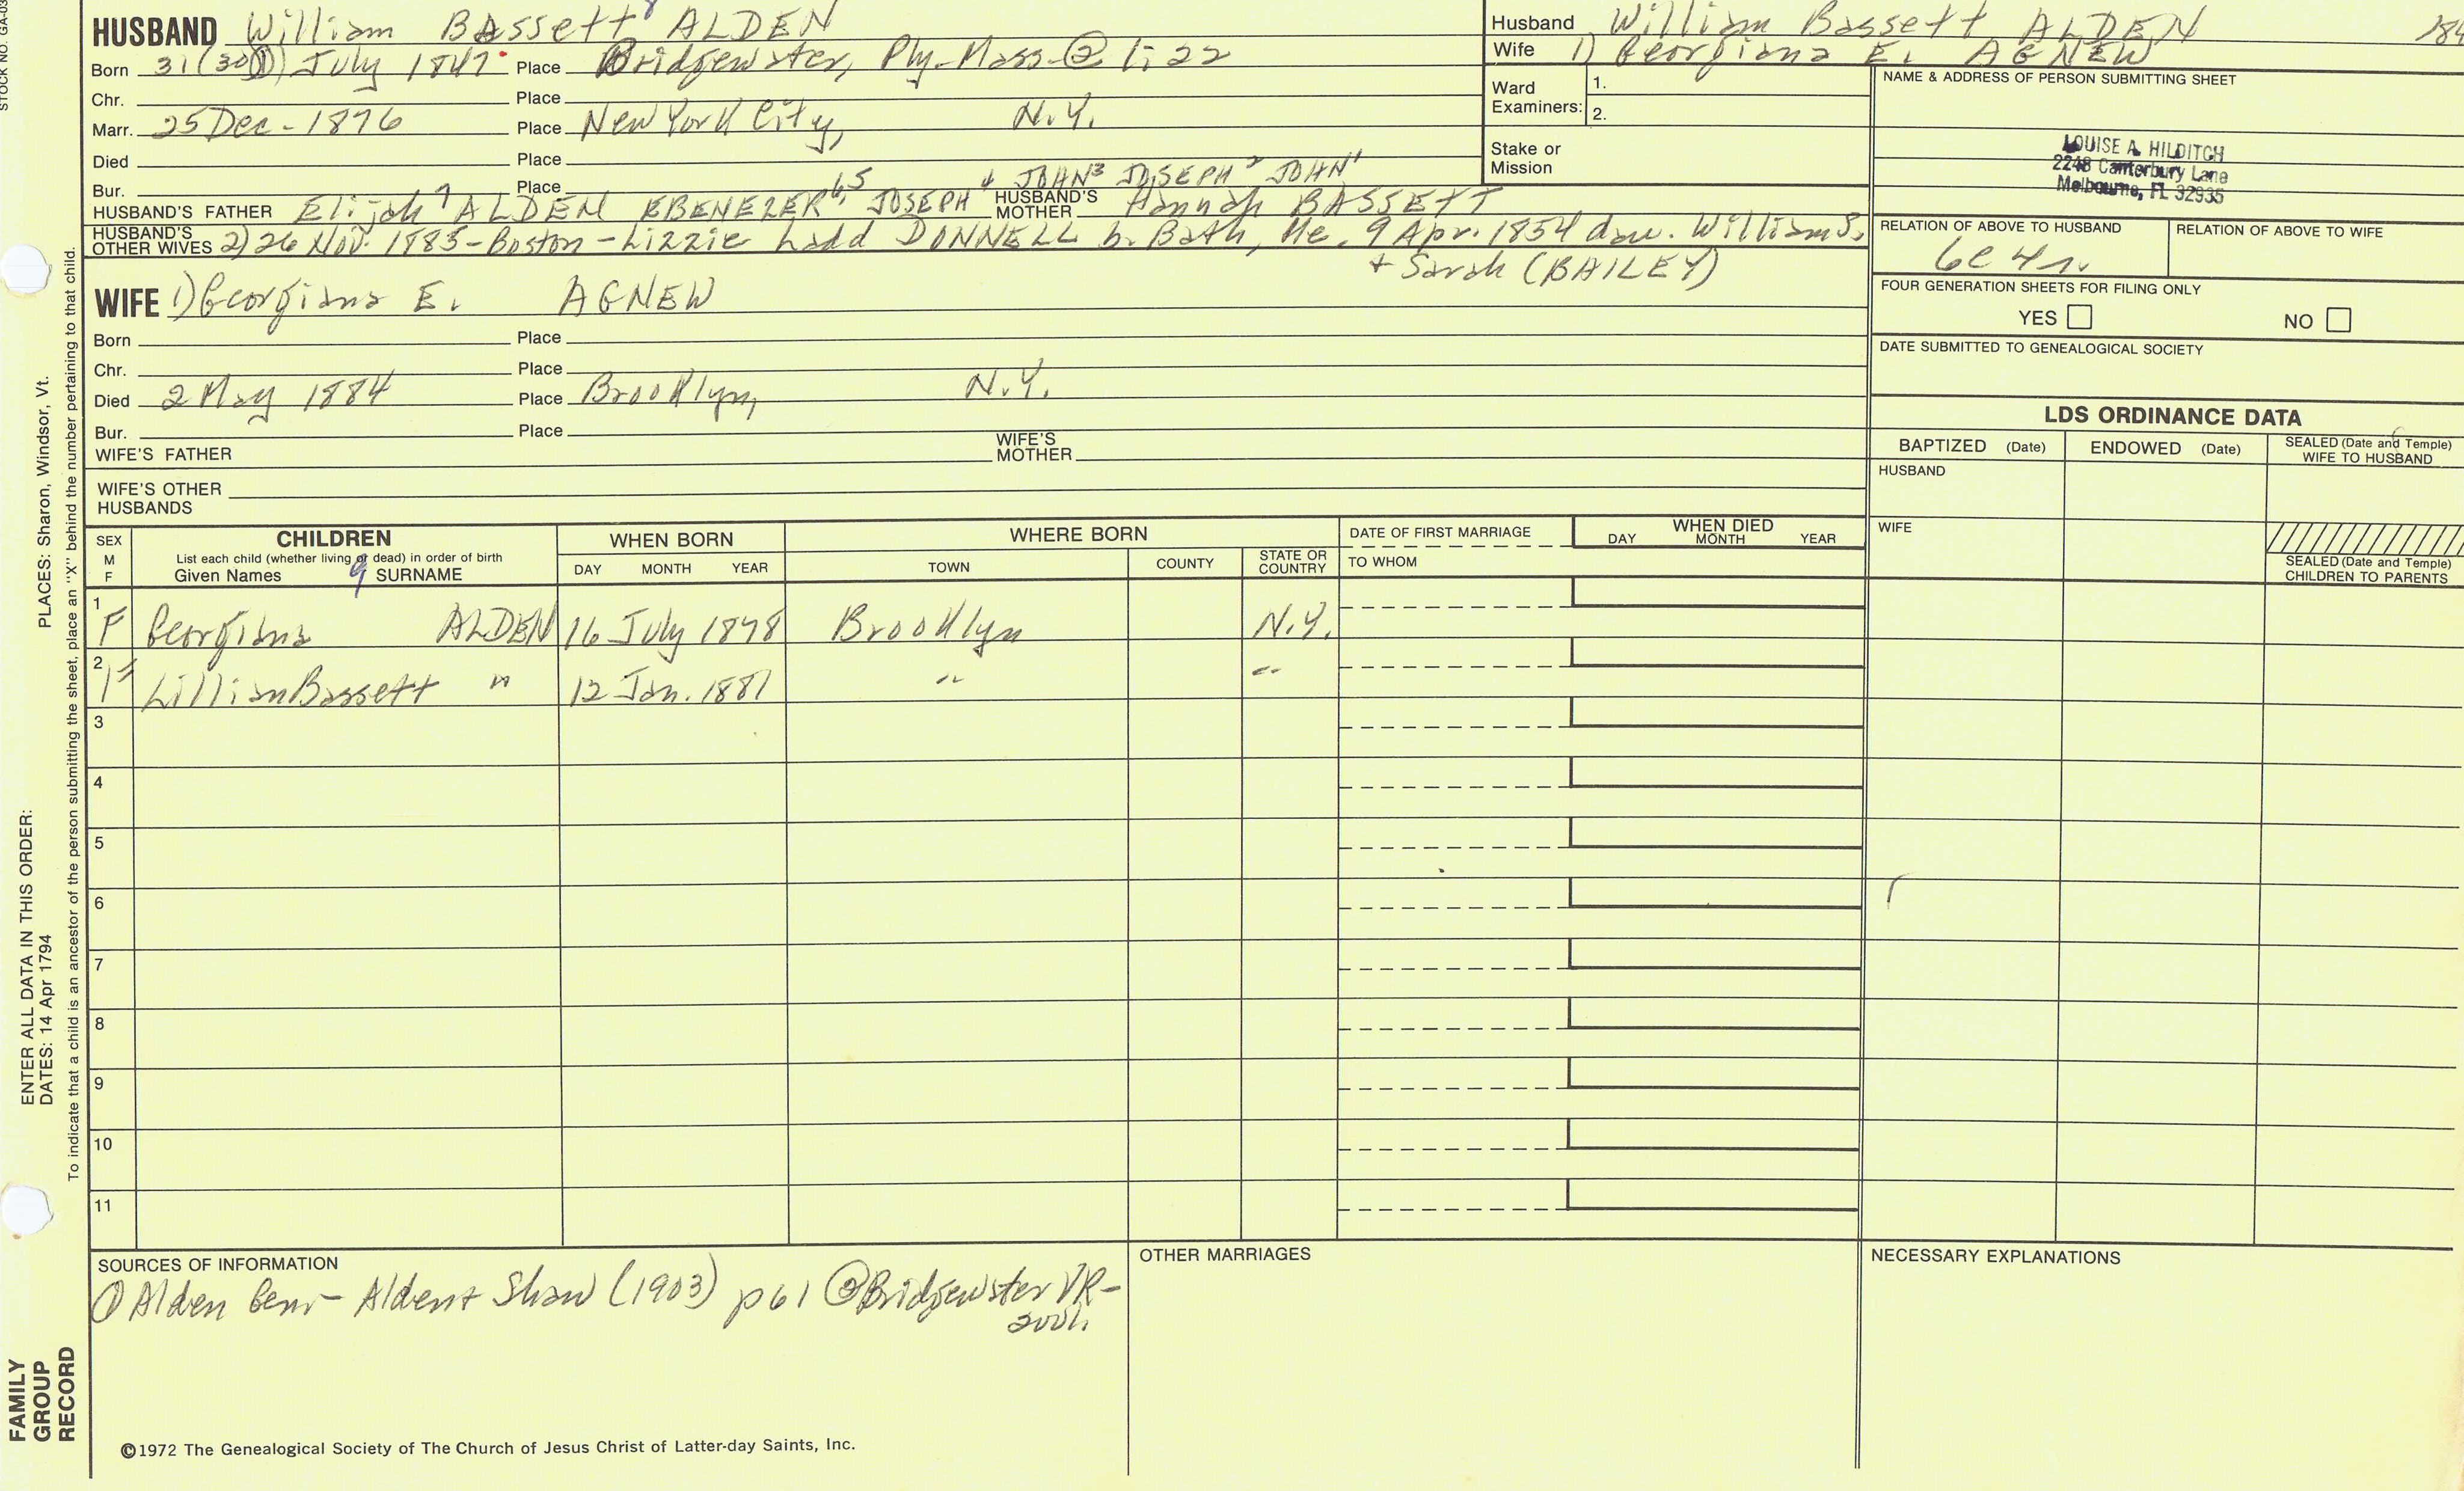 STOCK NO. GA-03
HUSBAND William Bassett 8 ALDEN
Born 31 (30①) July 1847 Place Bridgewater, Ply-Mass-② 1:22
Chr. Place
Marr. 25 Dec-1876 Place New York City, N.Y.
Died Place
Bur. Place
HUSBAND'S FATHER Elijah 7 ALDEN EBENEZER 6, 5 JOSEPH 4 JOHN 3 JOSEPH 2 JOHN 1 HUSBAND'S MOTHER Hannah BASSETT
HUSBAND'S OTHER WIVES 2) 26 Nov. 1885-Boston-Lizzie Ladd DONNELL b. Bath, Me. 9 Apr. 1854 dau. William S.
+ Sarah (BAILEY)
WIFE 1) Georgiana E. AGNEW
Born Place
Chr. Place
Died 2 May 1884 Place Brooklyn, N.Y.
Bur. Place
WIFE'S FATHER WIFE'S MOTHER
WIFE'S OTHER HUSBANDS
Husband William Bassett ALDEN 184
Wife 1) Georgiana E. AGNEW
Ward Examiners: 1.
2.
Stake or Mission
NAME & ADDRESS OF PERSON SUBMITTING SHEET
LOUISE A. HILDITCH
2248 Canterbury Lane
Melbourne, FL 32935
RELATION OF ABOVE TO HUSBAND RELATION OF ABOVE TO WIFE
6c 4r.
FOUR GENERATION SHEETS FOR FILING ONLY
YES NO
DATE SUBMITTED TO GENEALOGICAL SOCIETY
LDS ORDINANCE DATA
BAPTIZED (Date) ENDOWED (Date) SEALED (Date and Temple) WIFE TO HUSBAND
HUSBAND
WIFE
SEALED (Date and Temple) CHILDREN TO PARENTS
SEX M F CHILDREN WHEN BORN WHERE BORN DATE OF FIRST MARRIAGE WHEN DIED
List each child (whether living or dead) in order of birth
Given Names 9 SURNAME DAY MONTH YEAR TOWN COUNTY STATE OR COUNTRY TO WHOM DAY MONTH YEAR
1 F Georgiana ALDEN 16 July 1878 Brooklyn N.Y.
2 F Lillian Bassett " 12 Jan. 1881 " "
3
4
5
6
7
8
9
10
11
SOURCES OF INFORMATION OTHER MARRIAGES NECESSARY EXPLANATIONS
① Alden Gen- Alden + Shaw (1903) p61 ② Bridgewater VR-
©1972 The Genealogical Society of The Church of Jesus Christ of Latter-day Saints, Inc.
ENTER ALL DATA IN THIS ORDER:
DATES: 14 Apr 1794 PLACES: Sharon, Windsor, Vt.
To indicate that a child is an ancestor of the person submitting the sheet, place an "X" behind the number pertaining to that child.
FAMILY
GROUP
RECORD